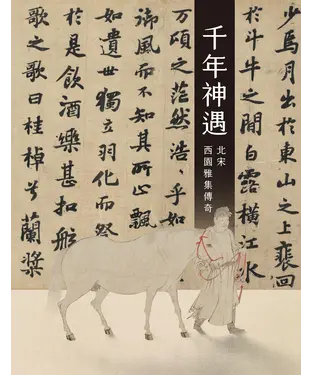 少焉月出於東山之上裴回
於斗牛之間白露橫江水
千年神遇
北宋
西園雅集傳奇
万頃之茫然浩〻乎如
御風而不知其所止飄
如遺世獨立羽化而登
於是飲酒樂甚扣舷
歌之歌曰桂棹兮蘭槳